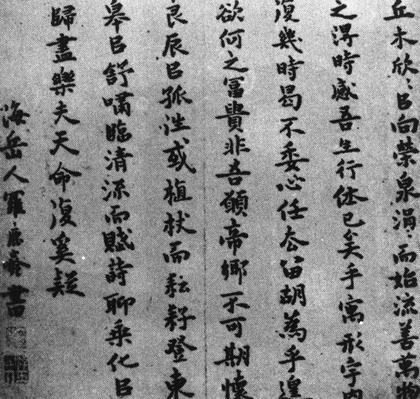 丘木欣〻㠯向榮泉涓〻而始流善萬物
之得時感吾生行休已矣乎寓形宇内
復幾時曷不委心任去留胡為乎遑
欲何之冨貴非吾願帝鄉不可期懷
良辰㠯孤往或植杖而耘耔登東
皋㠯舒嘯臨清流而賦詩聊乘化㠯
歸盡樂夫天命復奚疑
海岳人羅書